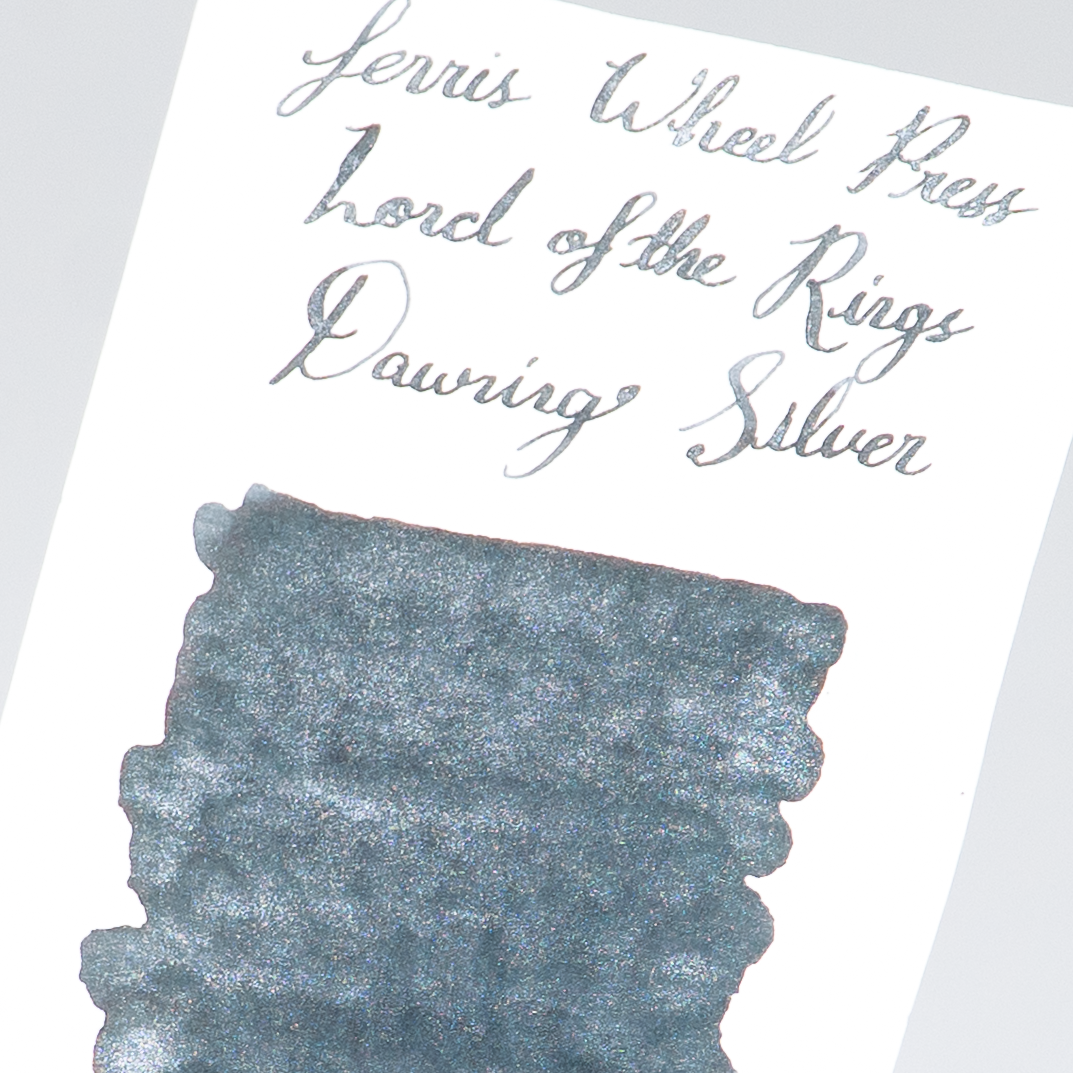 Ferris Wheel Press
Lord of the Rings
Dawning Silver